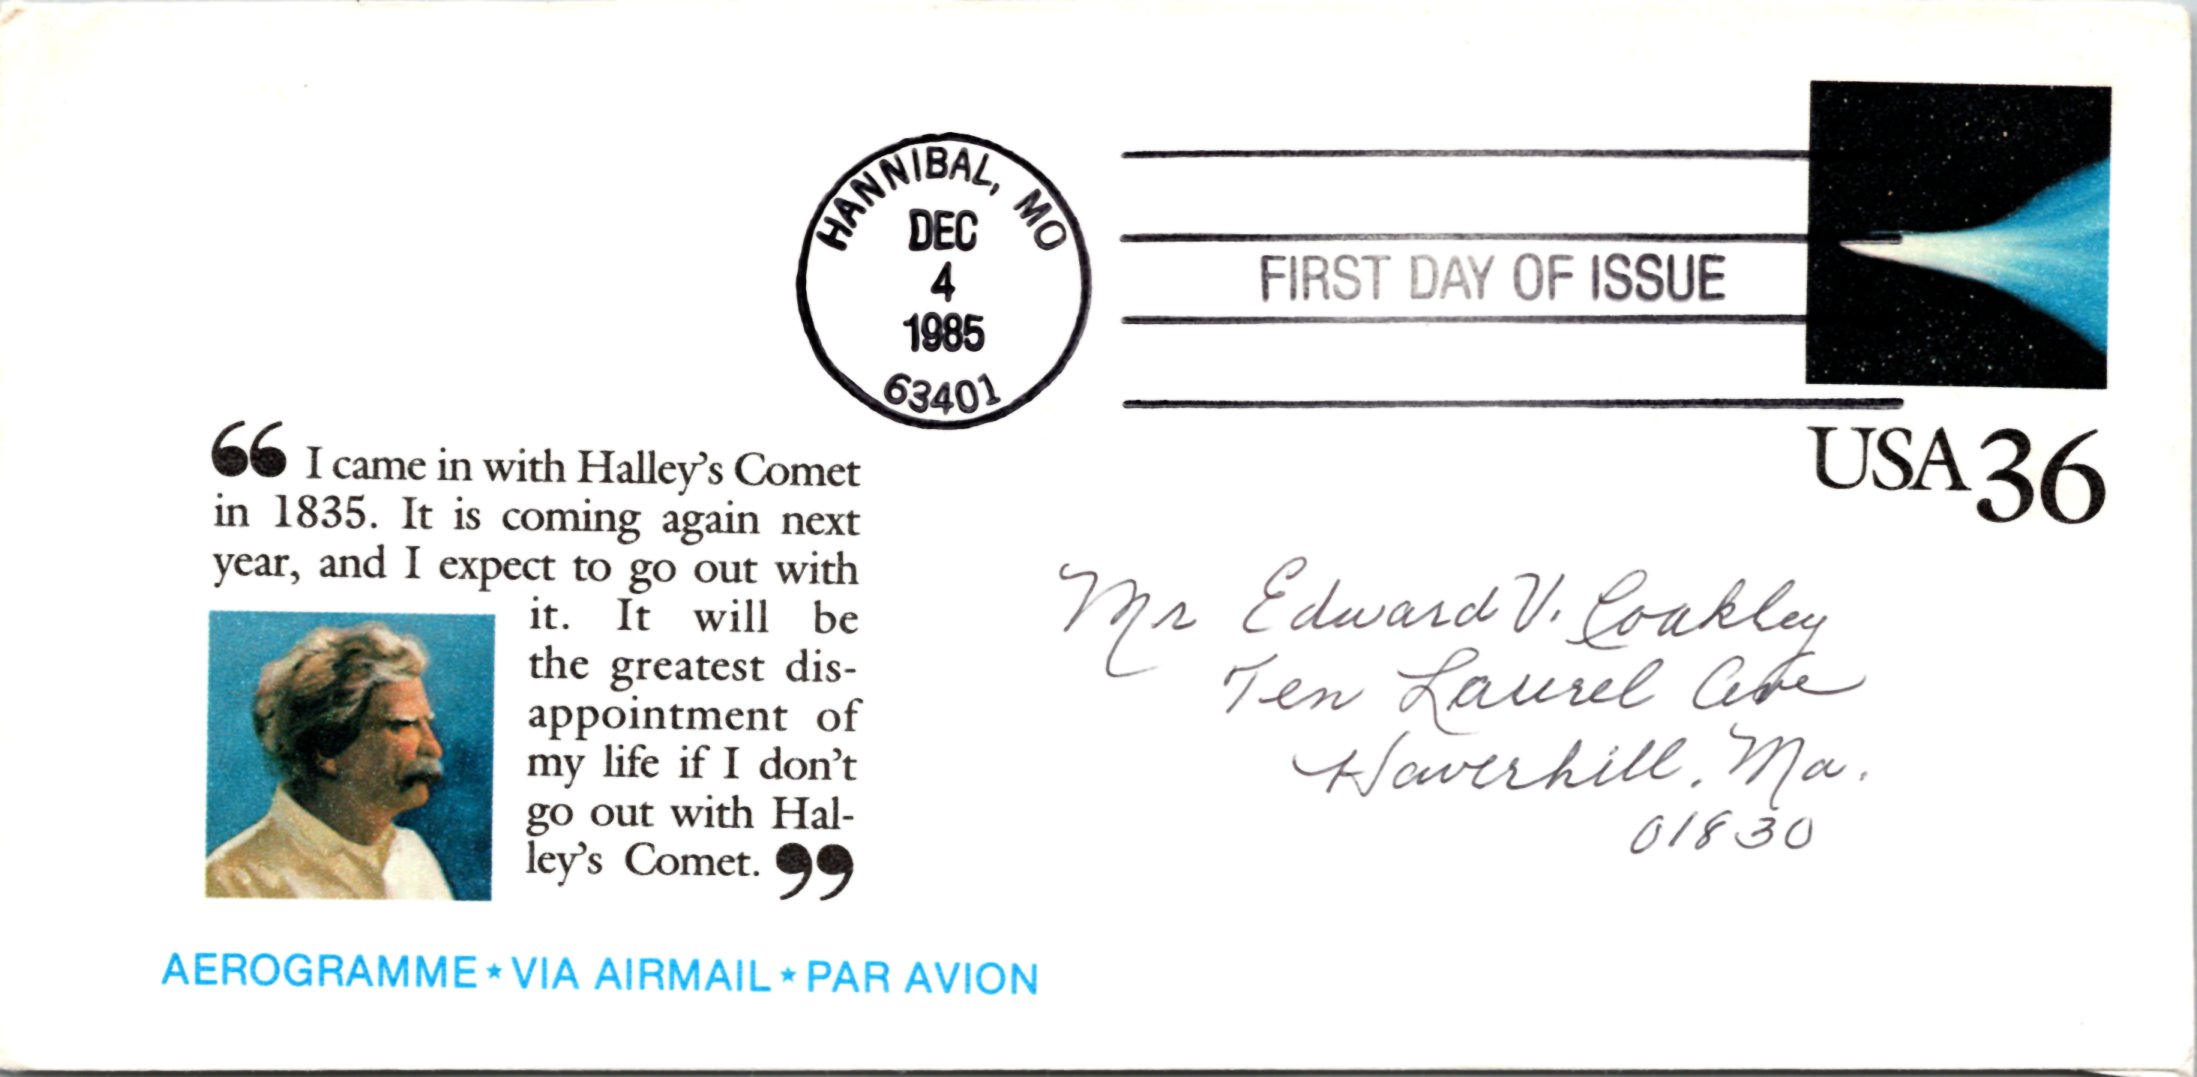 HANNIBAL, MO
DEC
4
1985
63401
FIRST DAY OF ISSUE
USA 36
“ I came in with Halley’s Comet
in 1835. It is coming again next
year, and I expect to go out with
it. It will be
the greatest dis-
appointment of
my life if I don’t
go out with Hal-
ley’s Comet. ”
Mr Edward V. Coakley
Ten Laurel Ave
Haverhill, Ma.
01830
AEROGRAMME ★ VIA AIRMAIL ★ PAR AVION